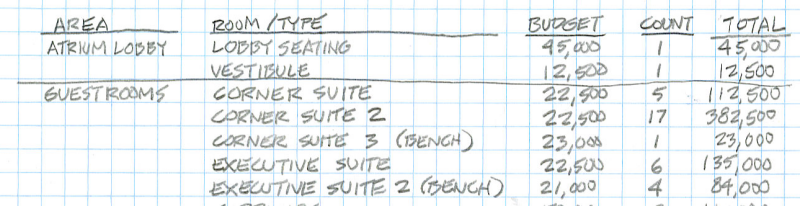 AREA ROOM/TYPE BUDGET COUNT TOTAL
ATRIUM LOBBY LOBBY SEATING 45,000 1 45,000
VESTIBULE 12,500 1 12,500
GUESTROOMS CORNER SUITE 22,500 5 112,500
CORNER SUITE 2 22,500 17 382,500
CORNER SUITE 3 (BENCH) 23,000 1 23,000
EXECUTIVE SUITE 22,500 6 135,000
EXECUTIVE SUITE 2 (BENCH) 21,000 4 84,000